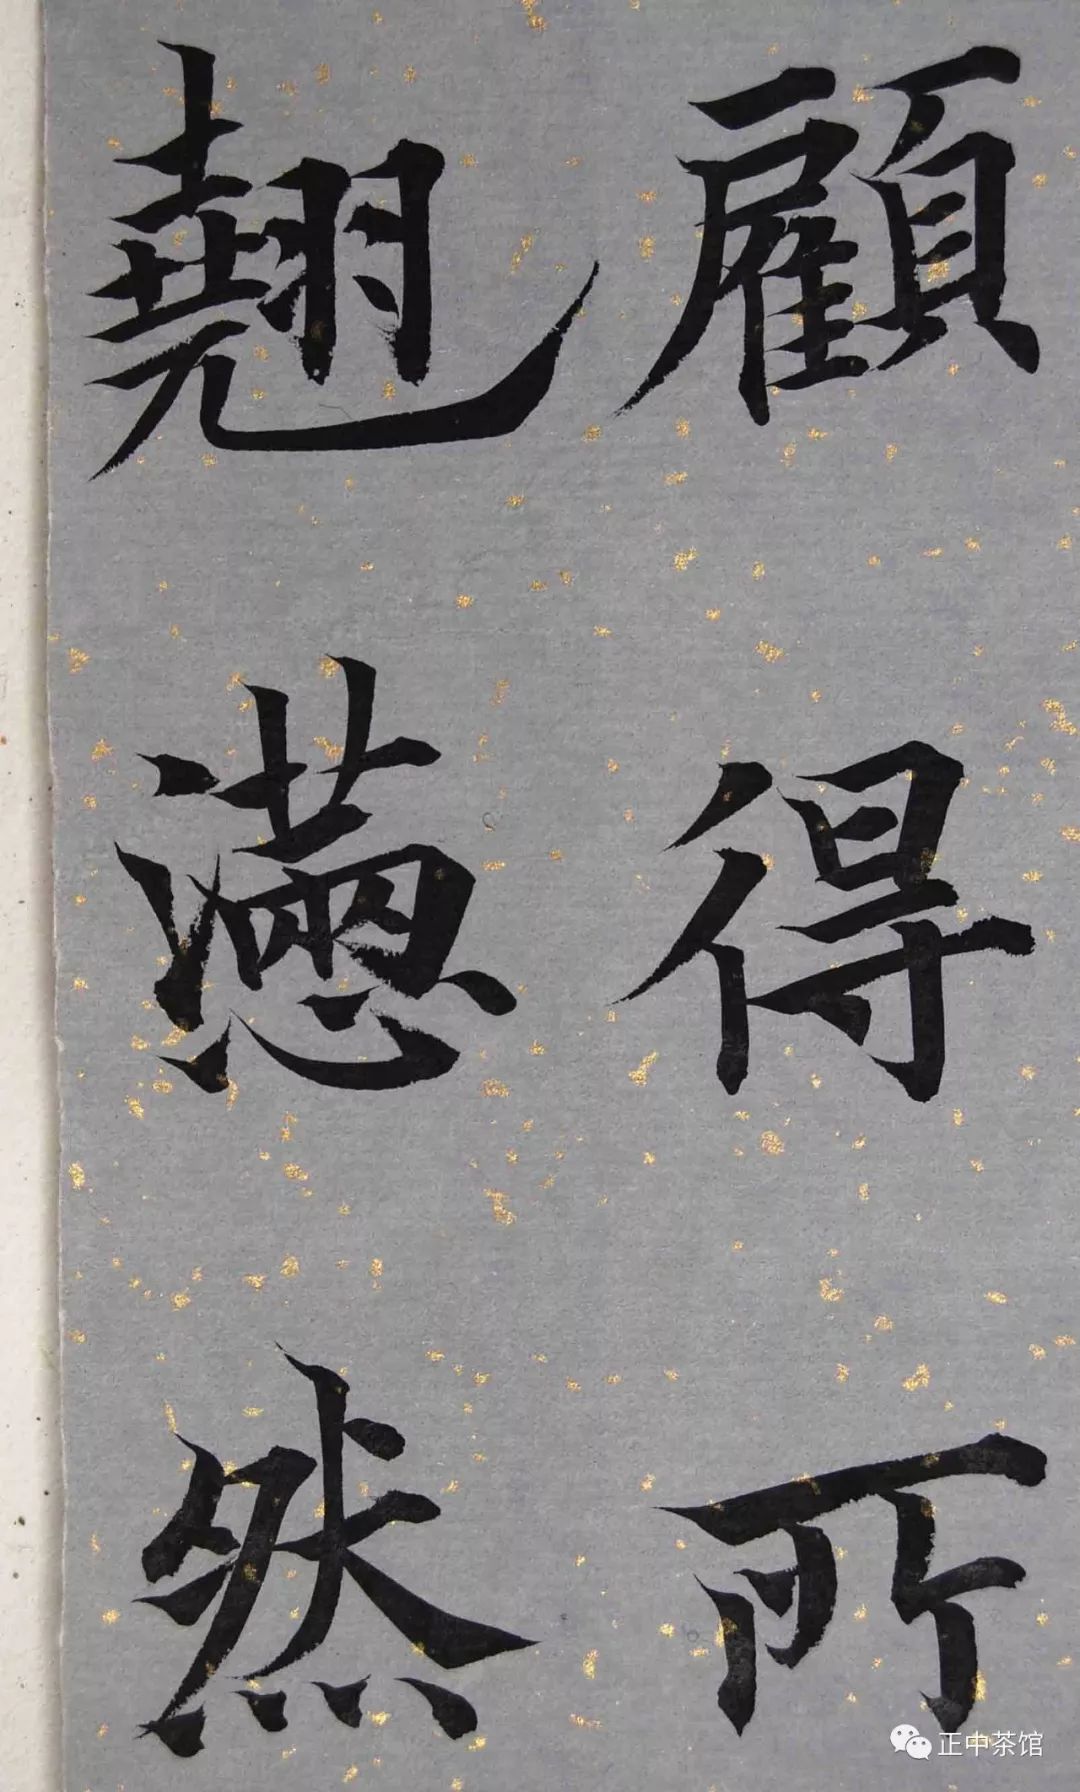 顧得所
翹懣然
正中茶馆